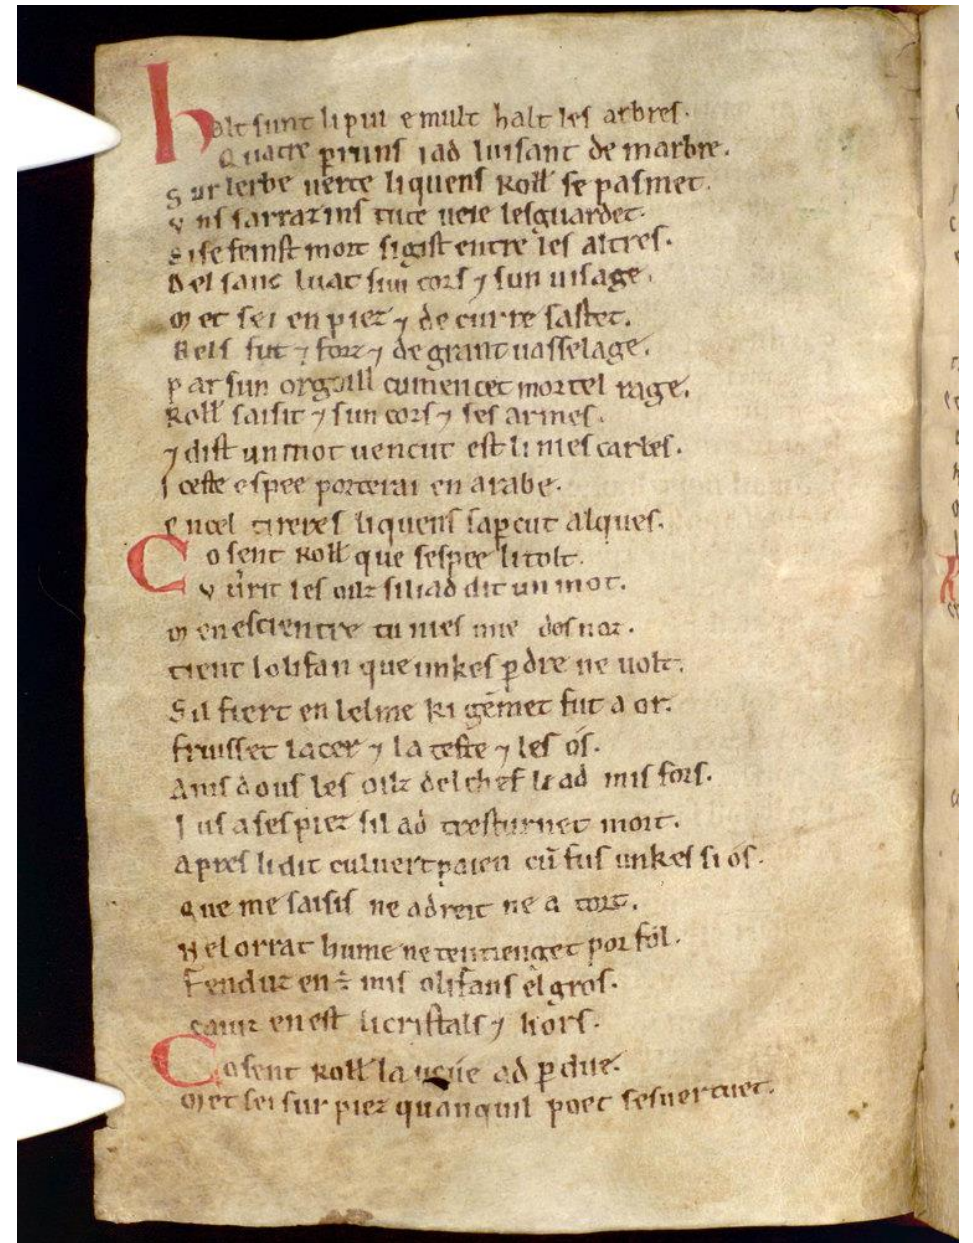 halt sunt li pui e mult halt les arbres.
Quatre p̲runs i ad luisant de marbre.
Sur lerbe uerte li quens Roll̅ se pasmet.
Vns sarrazins tute ueie lesguardet.
Sise feinst mort si gist entre les altres.
Del sanc luat sun cors ⁊ sun uisage.
Met sei en piez ⁊ de curre sastet.
Bels fut ⁊ forz ⁊ de grant uasselage.
Par sun orguill cumencet mortel rage.
Roll̅ saisit ⁊ sun cors ⁊ ses armes.
⁊ dist un mot uencut est li nies carles.
Iceste espee porterai en arabe.
Encel tireres li quens sap̲cut alques.
Co sent Roll̅ que sespee li tolt.
Vurit les oilz si li ad dit un mot.
Men escientre tu nies mie des noz.
tient lolifan que unkes p̲dre ne uolt.
Sil fiert en lelme ki gem̅et fut a or.
fruisset lacer ⁊ la teste ⁊ les os.
Amsdous les oilz del chef li ad mis fors.
Ius a ses piez sil ad tresturnet mort.
Apres li dit culuert paien cu̅ fus unkes si os.
Que me saisis ne a dreit ne a tort.
Nel orrat hume ne tentienget por fol.
Fenduz en est mis olifans el gros.
caiuz en est li cristals ⁊ li ors.
Co sent Roll̅ la ueue ad p̲due.
Met sei sur piez quanquil poet sesuertuet.